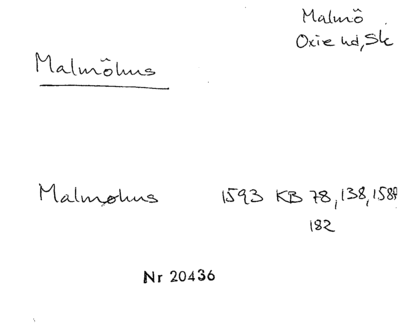 Malmö
Oxie hd, Sk
Malmöhus
Malmøhus 1593 KB 78, 138, 158,
182
Nr 20436